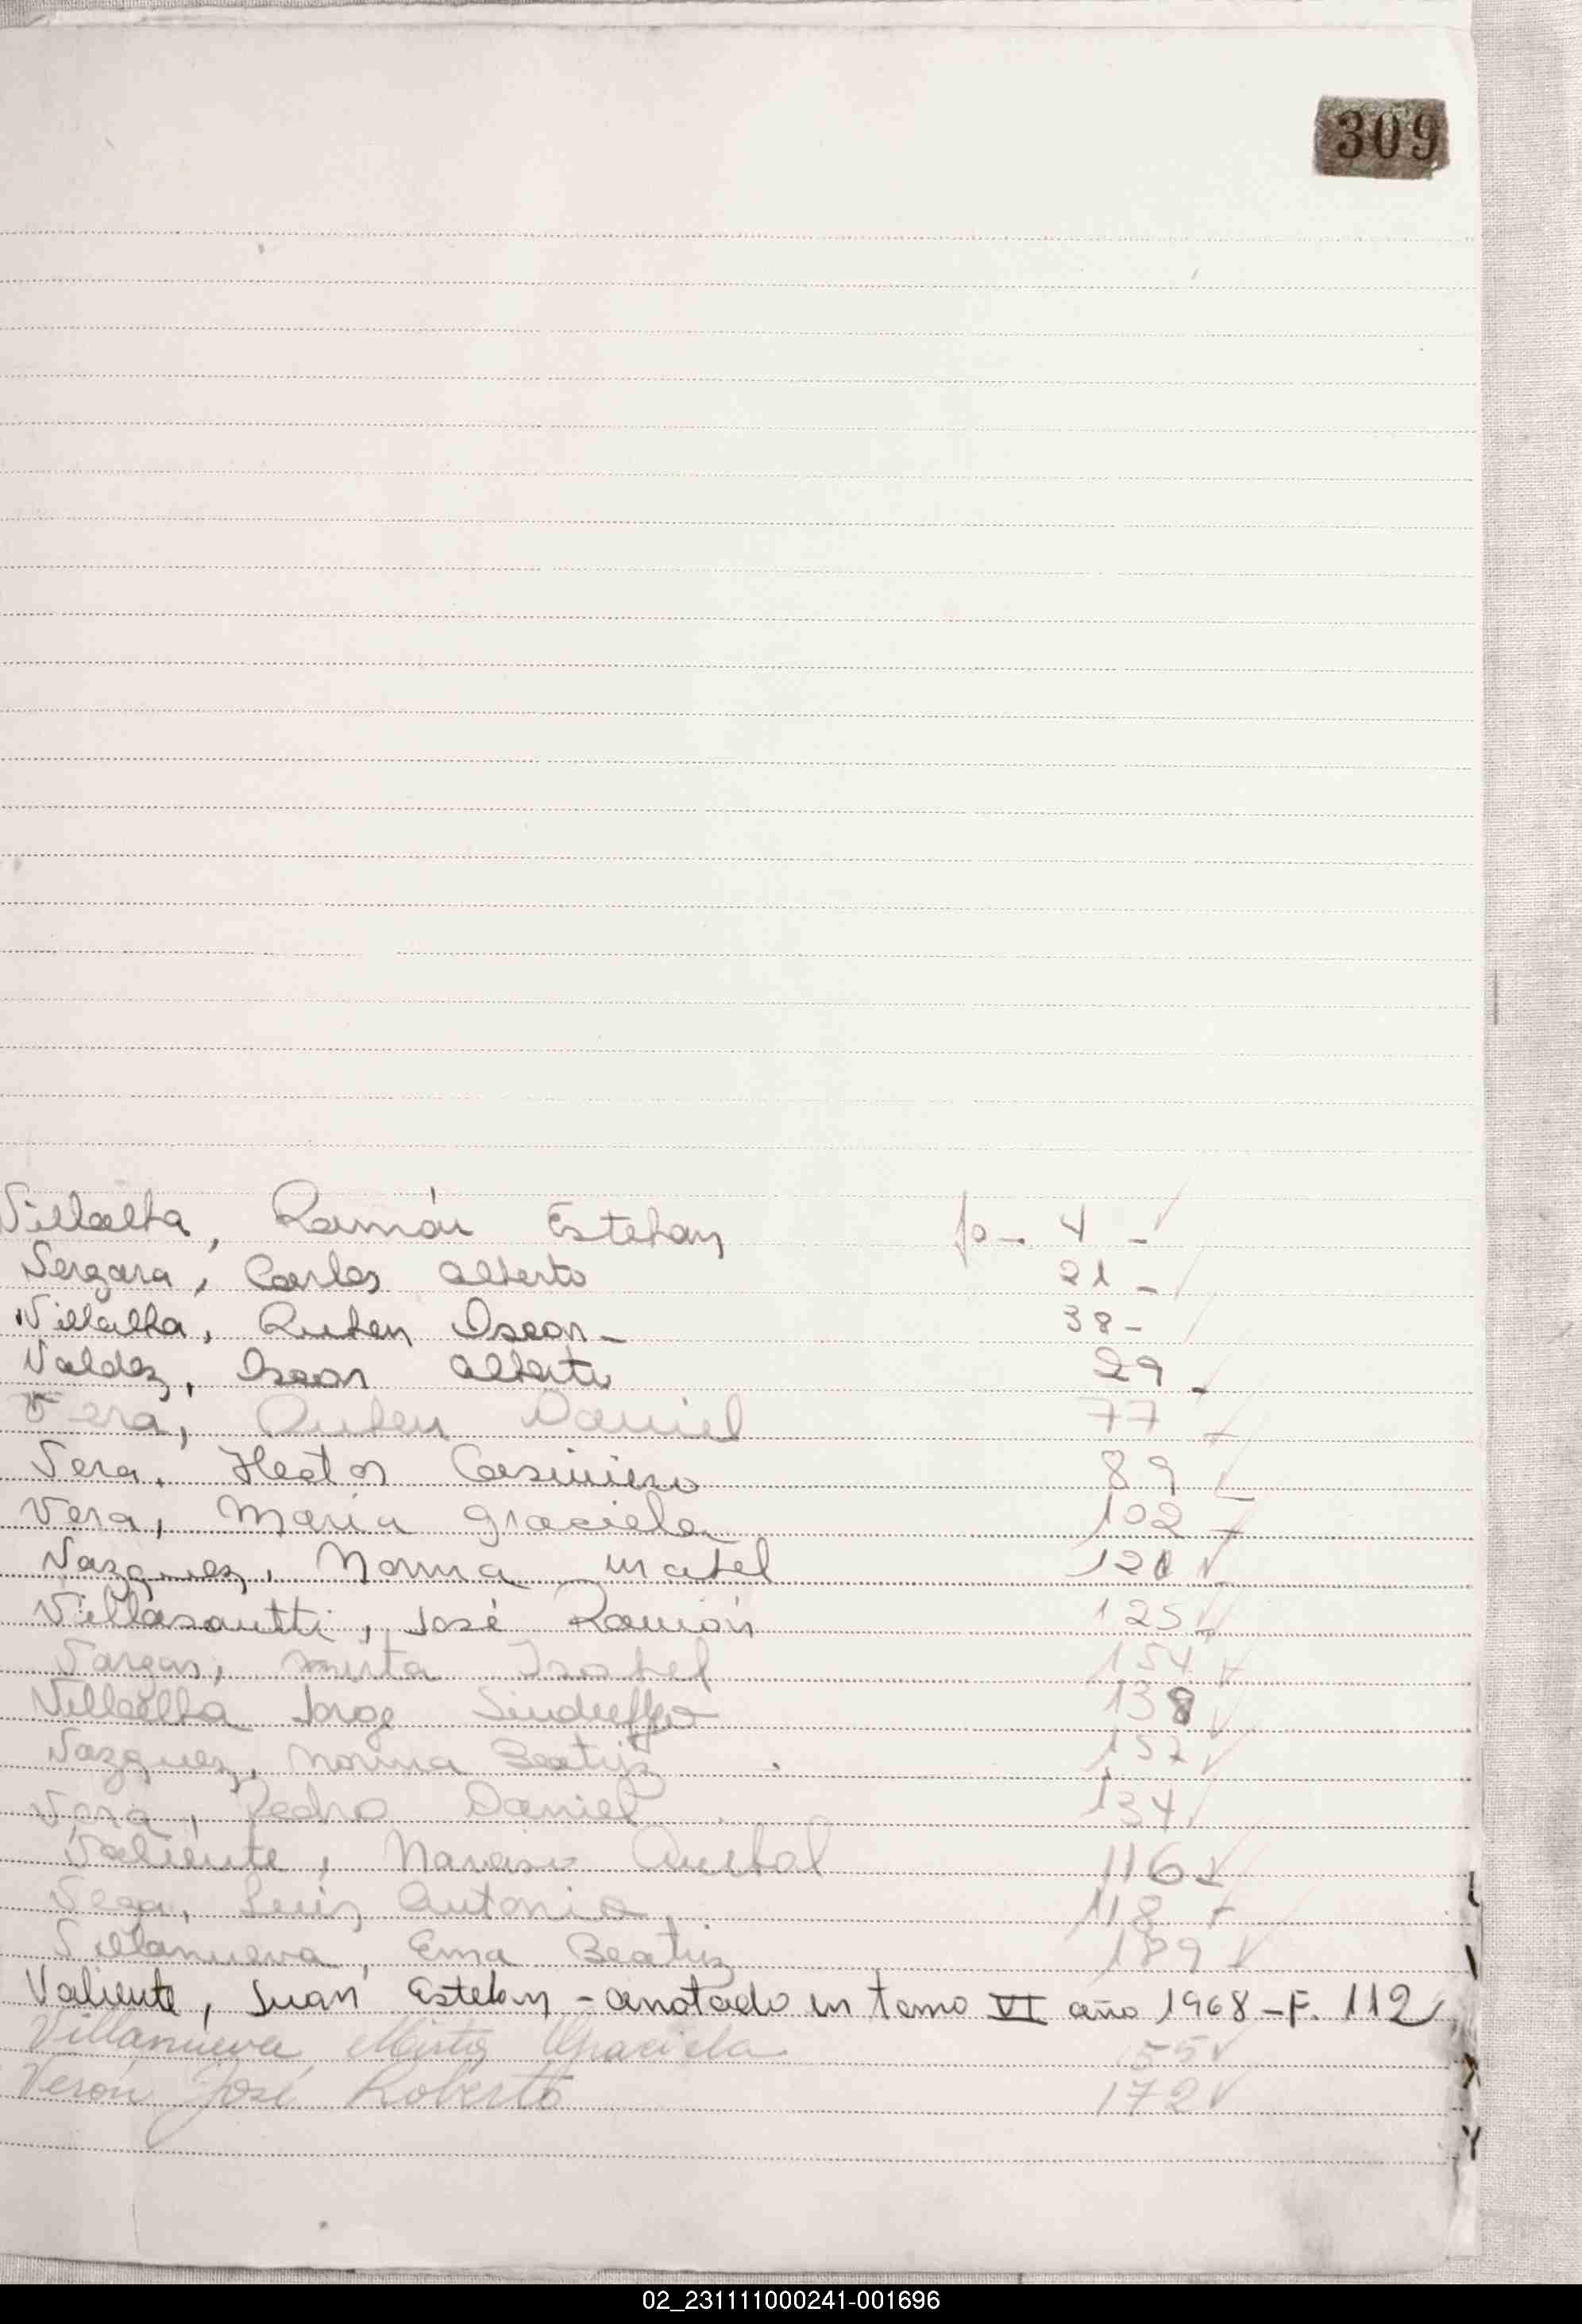 309
Villalba, Ramón Esteban fo-. 4 -
Vergara, Carlos Alberto 21 -
Villalba, Ruben Oscar - 38 -
Valdez, Oscar Alberto 29 -
Vera, Ruben Daniel 77
Vera, Hector Casimiro 89
Vera, Maria Graciela 102
Vazquez, Norma Mabel 121
Villasantti, José Ramón 125
Vargas, Mirta Isabel 154
Villalba Jorge 138
Vazquez, Norma Beatriz 157
Vera, Pedro Daniel 134
Valiente, Anibal 116
Vega, Luis Antonio 118
Villanueva, Ema Beatriz 189
Valiente, Juan Esteban - anotado en tomo VI año 1968 - F. 112
Villanueva Mirta Graciela 55
Verón José Roberto 172
L
X
Y
02_231111000241-001696